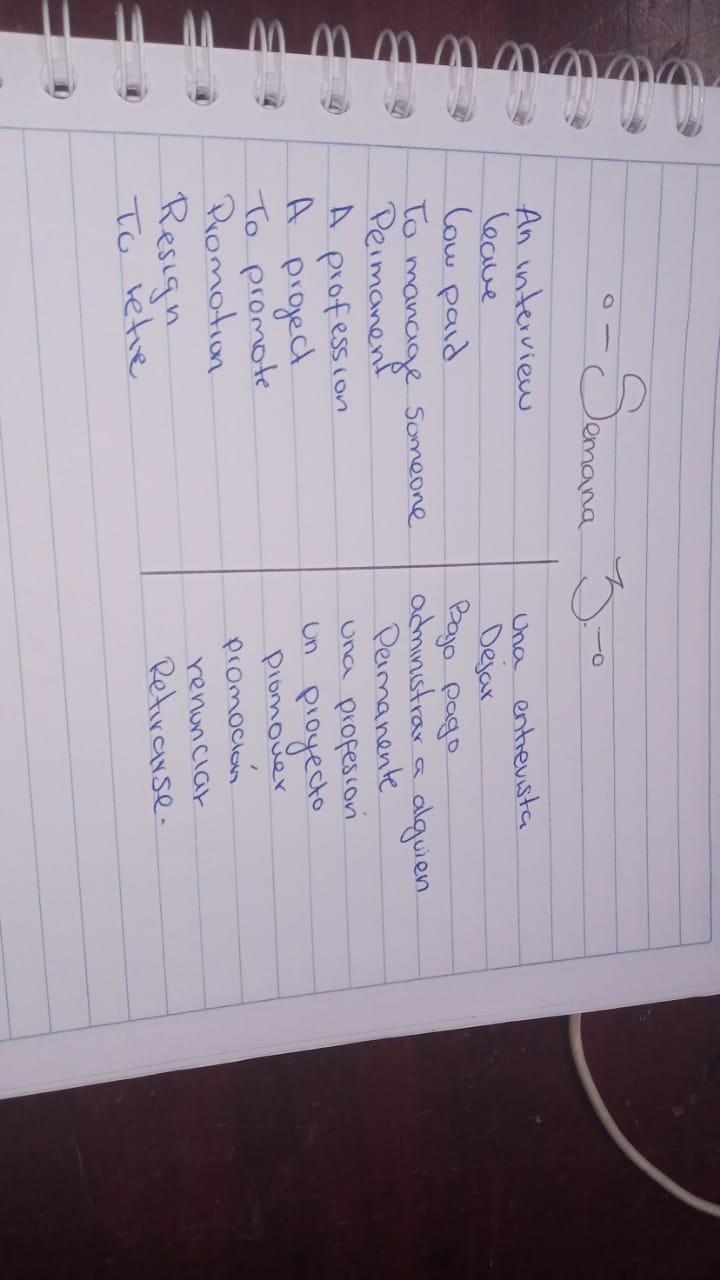 Semana 3
An interview una entrevista
leave Dejar
low paid Bajo pago
To manage someone administrar a alguien
Permanent Permanente
A profession una profesión
A project un proyecto
To promote promover
Promotion promoción
Resign renunciar
To retire Retirarse.